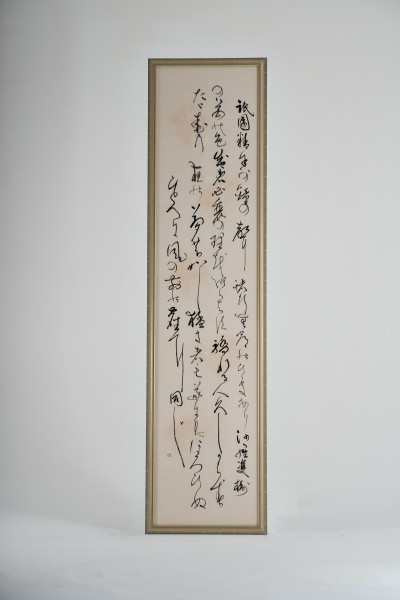 祇園精舎の鐘の聲 諸行無常のひゞきあり 沙羅雙樹
の花の色盛者必衰の理をあらはす 驕れる人久しからず
たゞ春の夜の夢の如し 猛き者も遂にはほろひぬ
ひとへに風の前の塵に同じ